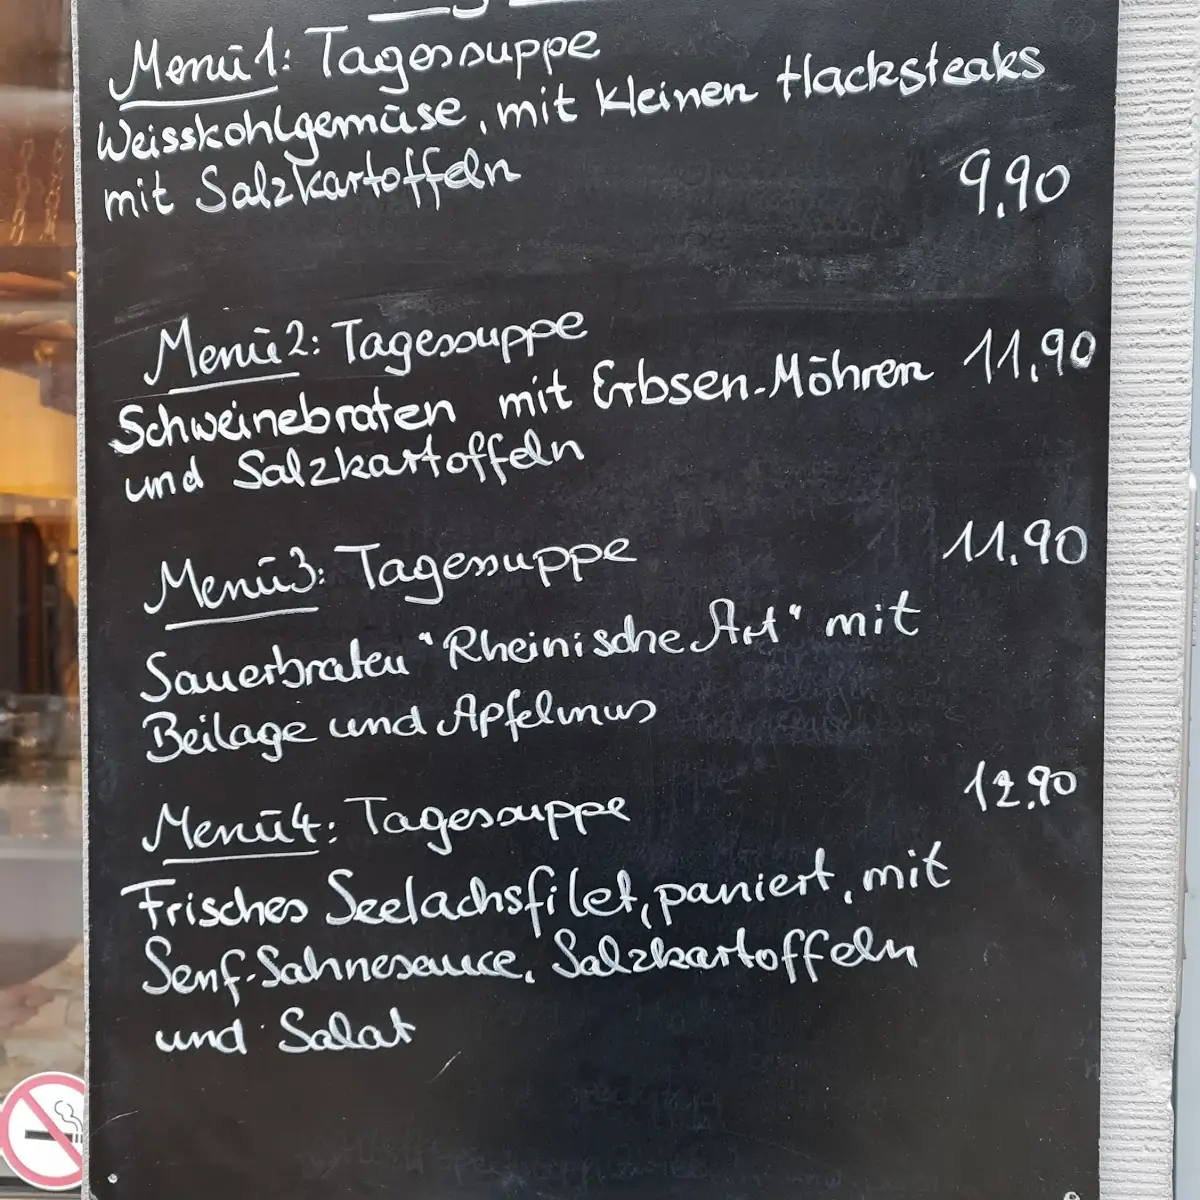 Menü 1: Tagessuppe
Weisskohlgemüse, mit kleinen Hacksteaks
mit Salzkartoffeln 9,90
Menü 2: Tagessuppe
Schweinebraten mit Erbsen-Möhren 11,90
und Salzkartoffeln
Menü 3: Tagessuppe 11,90
Sauerbraten "Rheinische Art" mit
Beilage und Apfelmus
Menü 4: Tagessuppe 12,90
Frisches Seelachsfilet, paniert, mit
Senf-Sahnesauce, Salzkartoffeln
und Salat